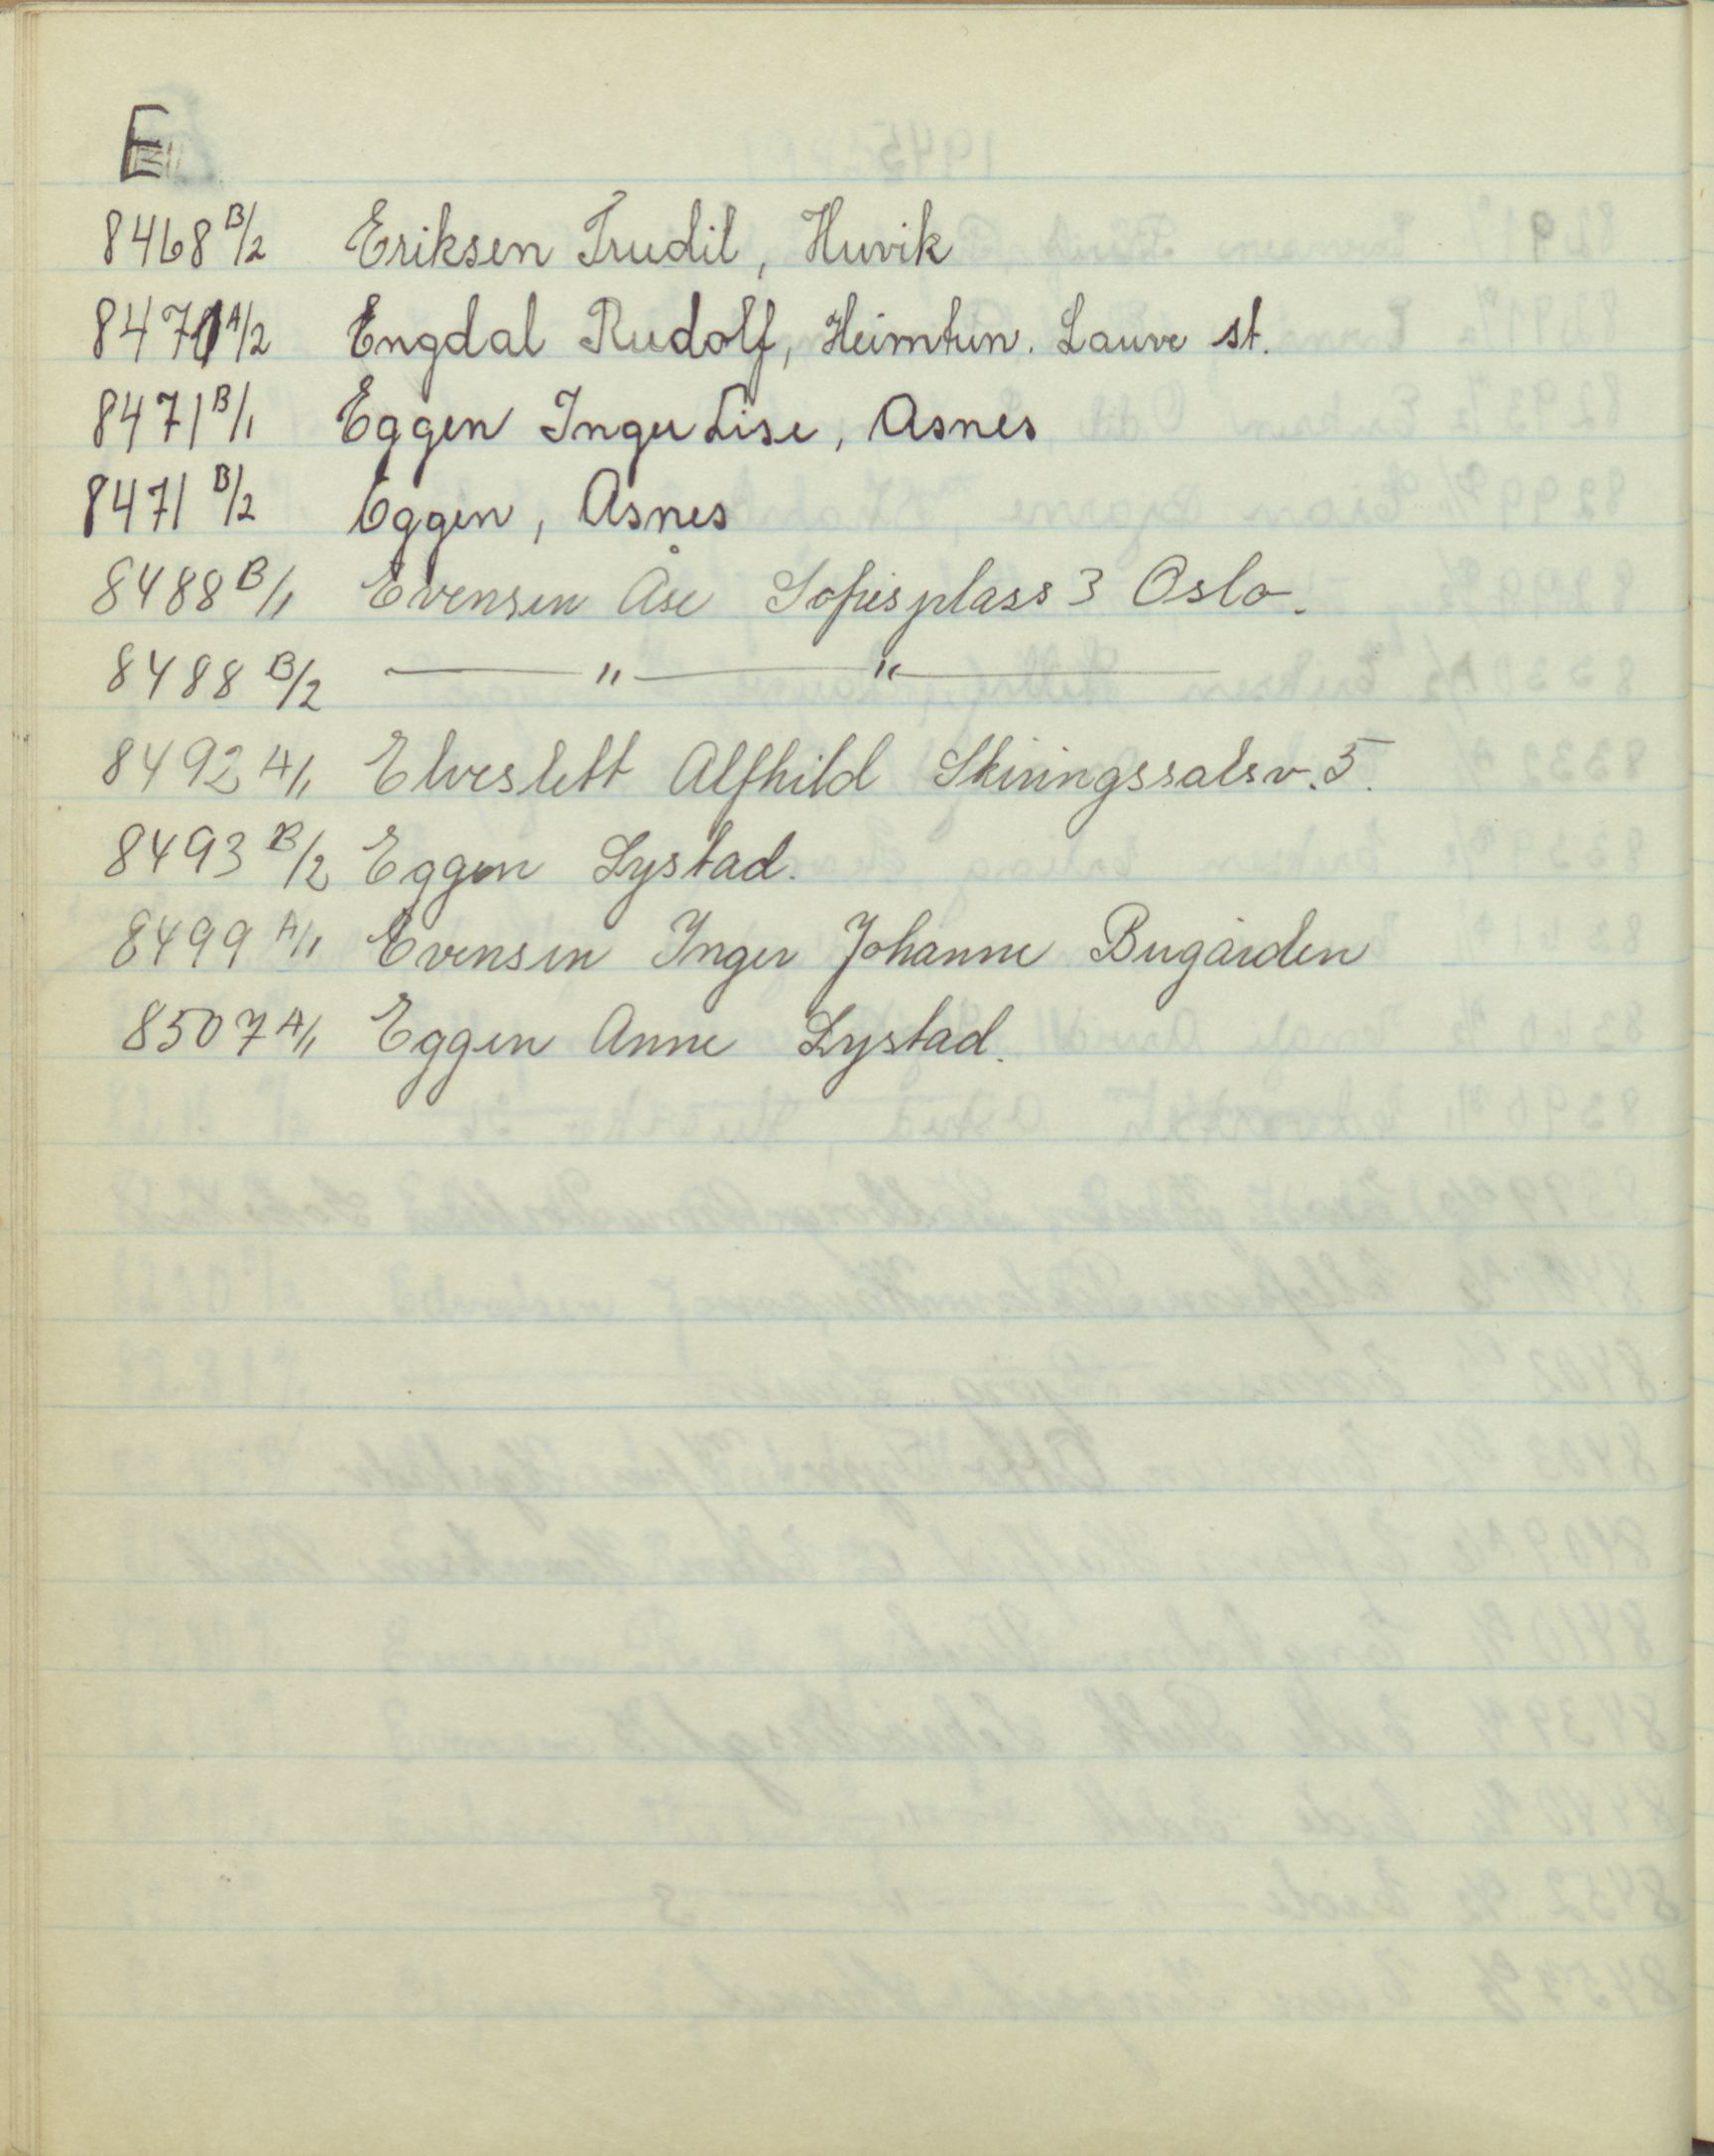 E
8468 B/2 Eriksen Trudil, Huvik
8470 A/2 Engdal Rudolf, Heimtun. Lauve st.
8471 B/1 Eggen Inger Lise, Asnes
8471 B/2 Eggen, Asnes
8488 B/1 Evensen Åse Sofiesplass 3 Oslo.
8488 B/2 — " — " —
8492 A/1 Elveslett Alfhild Skiringssalsv. 5.
8493 B/2 Eggen Lystad.
8499 A/1 Evensen Inger Johanne Bugården
8507 A/1 Eggen Anne Lystad.